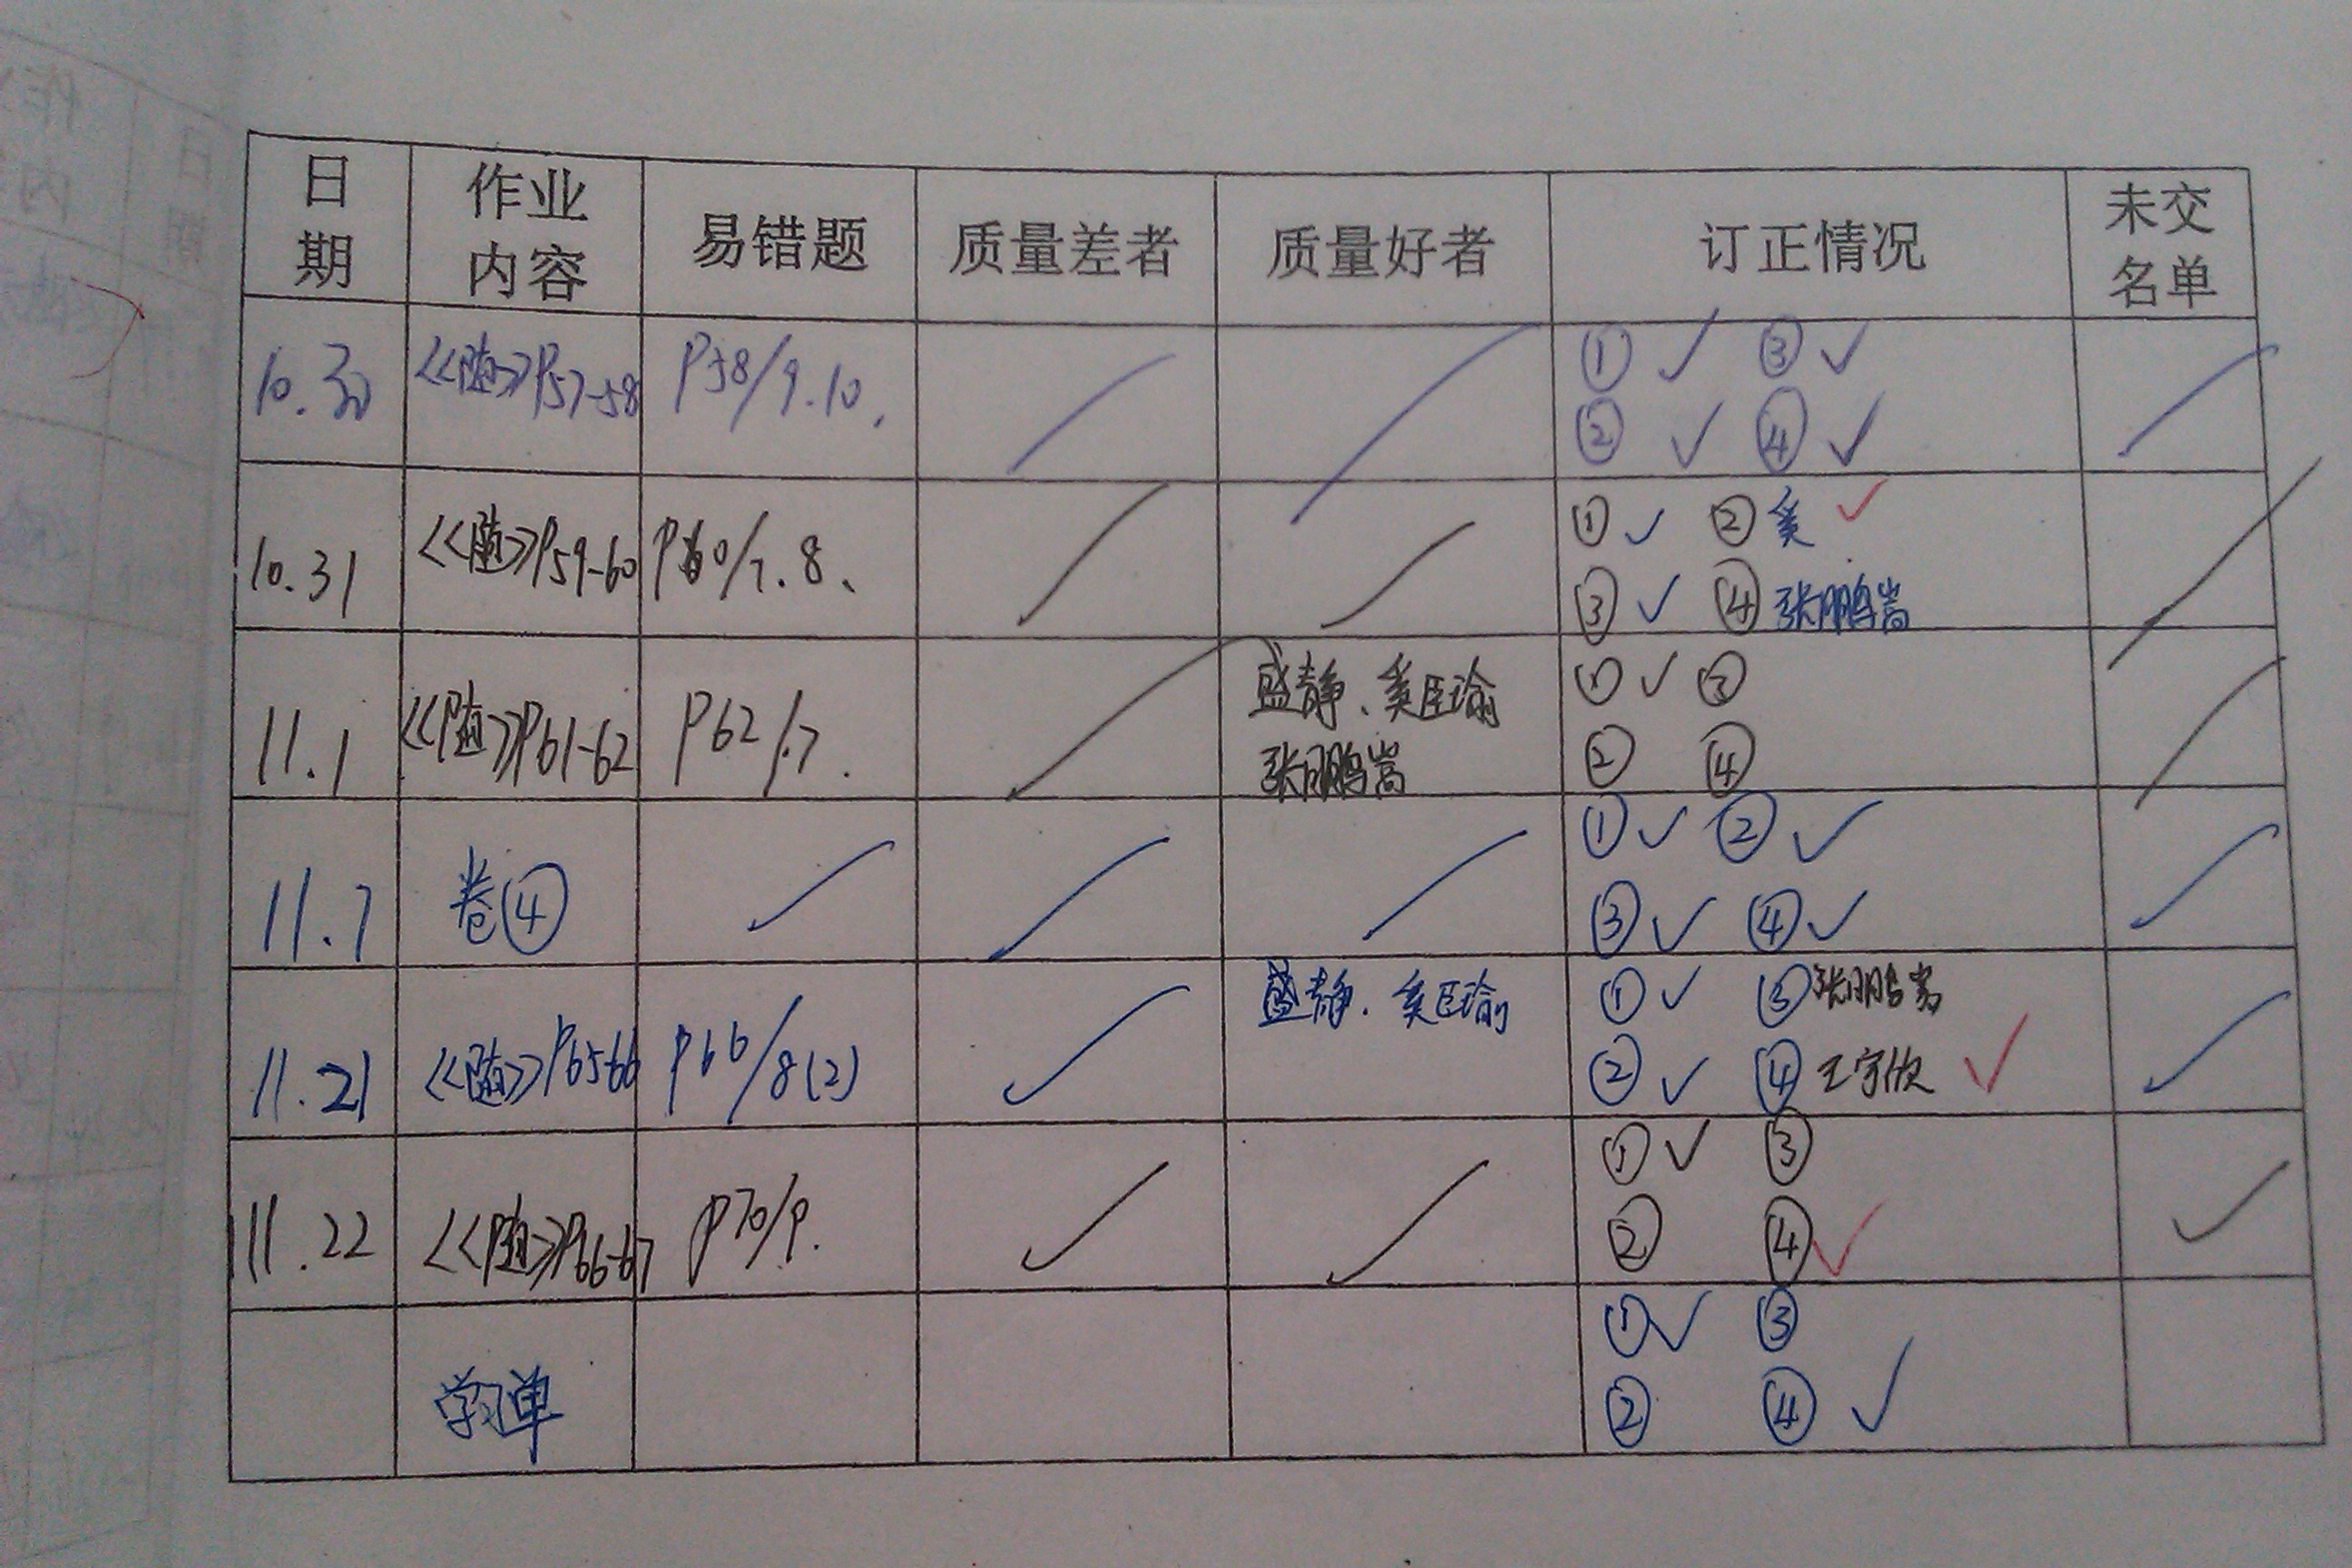 日期 作业内容 易错题 质量差者 质量好者 订正情况 未交名单
10.30 《随》P57-58 P58/9.10. ①✓ ③✓
②✓ ④✓
10.31 《随》P59-60 P60/7.8、 ①✓ ②奚✓
③✓ ④张鹏嵩
11.1 《随》P61-62 P62/7. 盛静、奚臣瑜 ①✓ ③
张鹏嵩 ② ④
11.7 卷④ ①✓ ②✓
③✓ ④✓
11.21 《随》P65-66 P66/8(2) 盛静、奚臣瑜 ①✓ ③张鹏嵩
②✓ ④王宇欣✓
11.22 《随》P66-67 P70/9. ①✓ ③
② ④✓
学习单 ①✓ ③
② ④✓